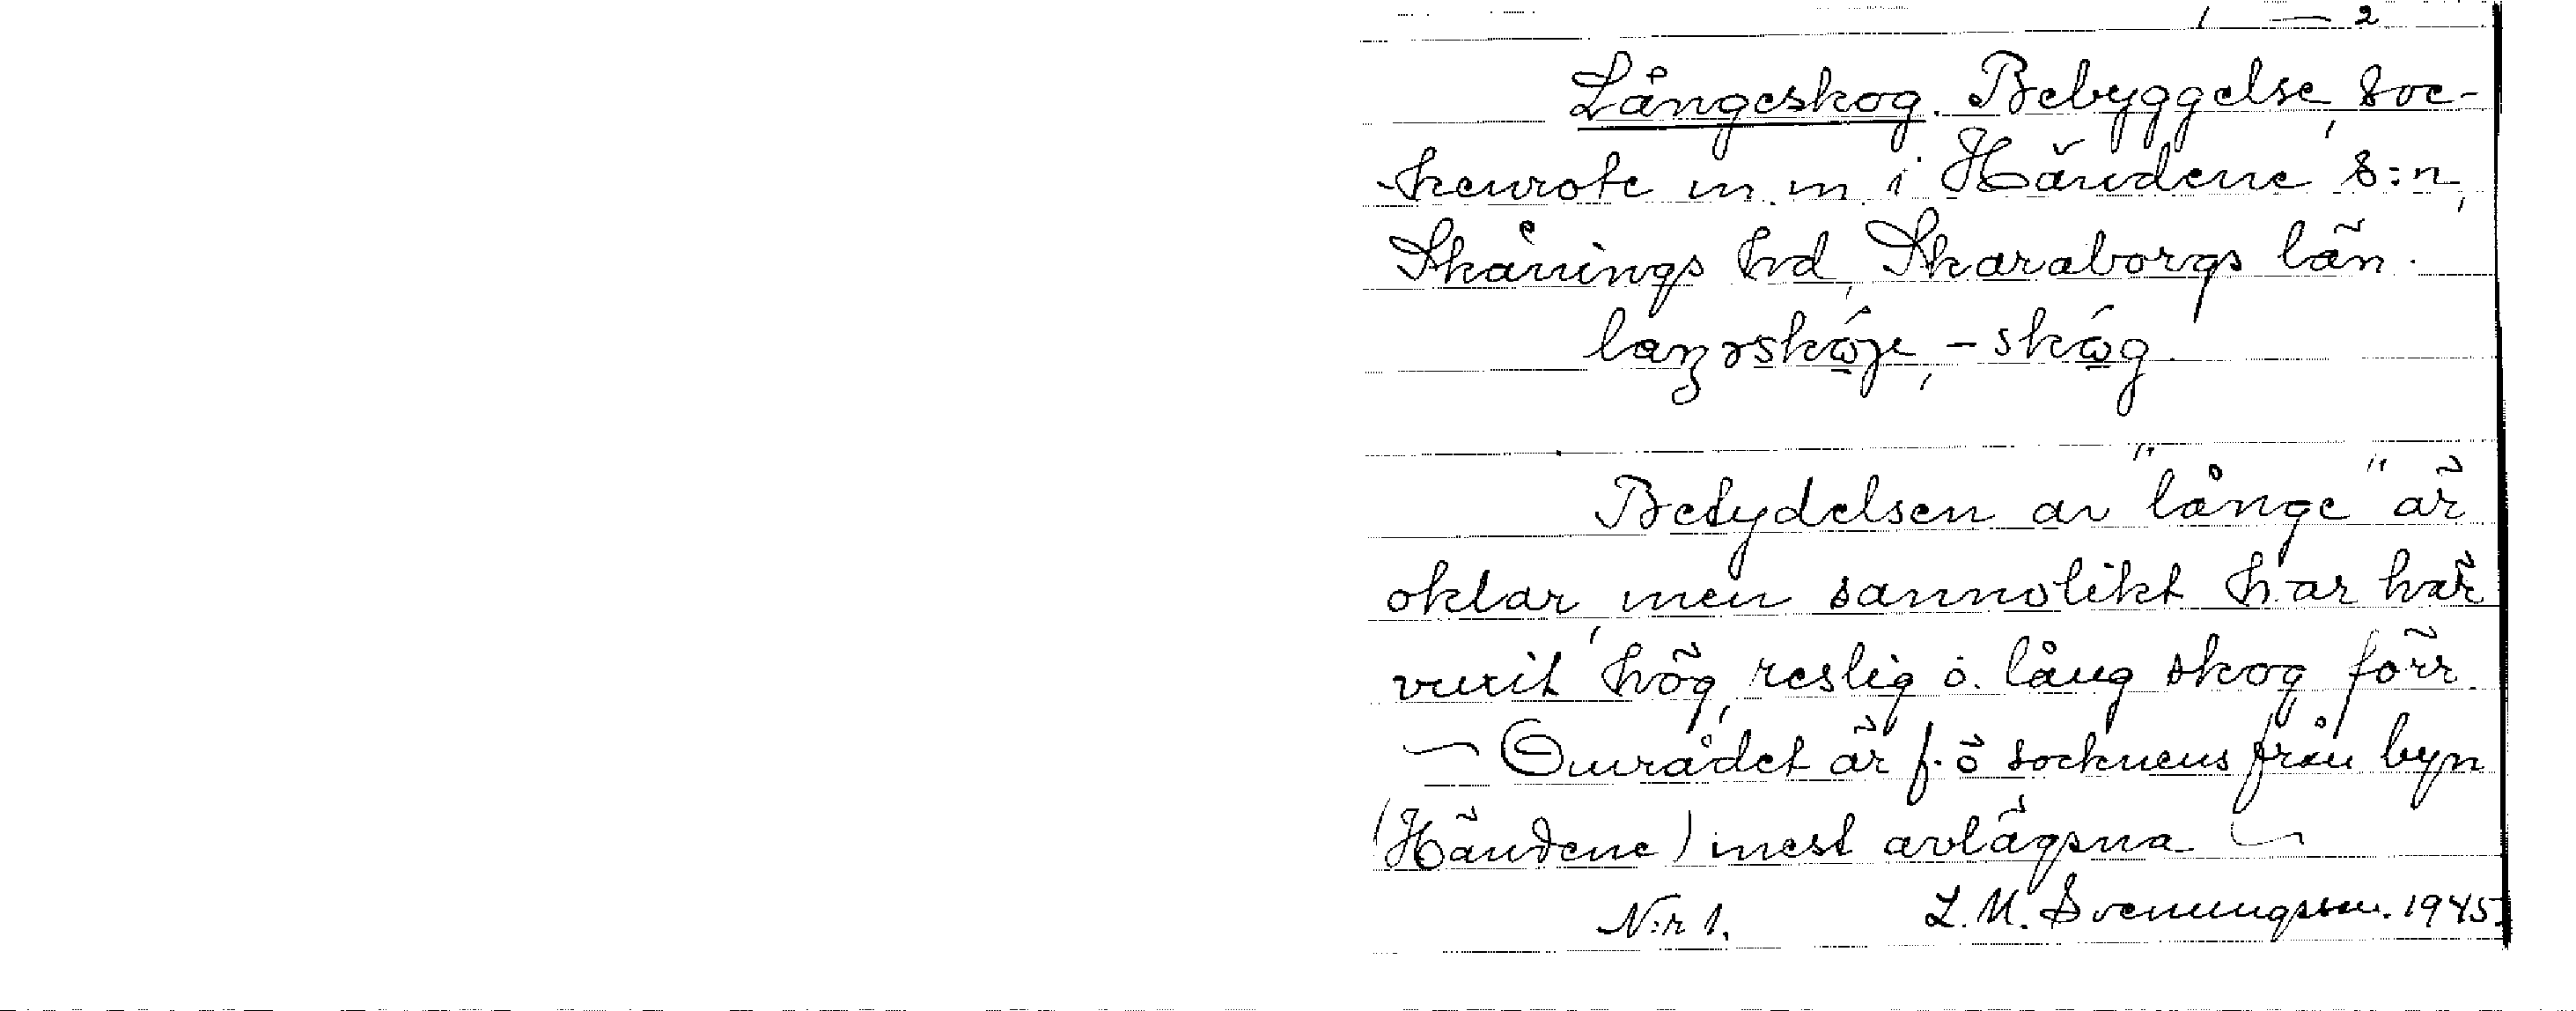 1 — 2
Långeskog. Bebyggelse, soc-
kenrote m. m. i Händene s:n,
Skånings hd, Skaraborgs län.
Betydelsen av "långe" är
oklar, men sannolikt har här
vuxit hög, reslig o. lång skog förr.
— Området är f. ö socknens från byn
(Händene) mest avlägsna —
N:r 1. L. M. Svenungsson. 1945.